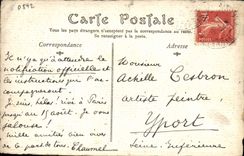 0842
Carte Postale
Tous les pays étrangers n'acceptent pas la correspondance au recto.
Se renseigner à la poste.
Correspondance
Adresse
Je n'ai qu'à attendre la
notification officielle et
les instructions qui l'ac-
compagneront.
Je suis, hélas! rivé à Paris
jusqu'au 15 août. Je vous
jalouse!
Mille amitiés bien vives
de la part de tous.
Monsieur
Achille Cesbron
Artiste peintre
Yport
Seine Inférieure